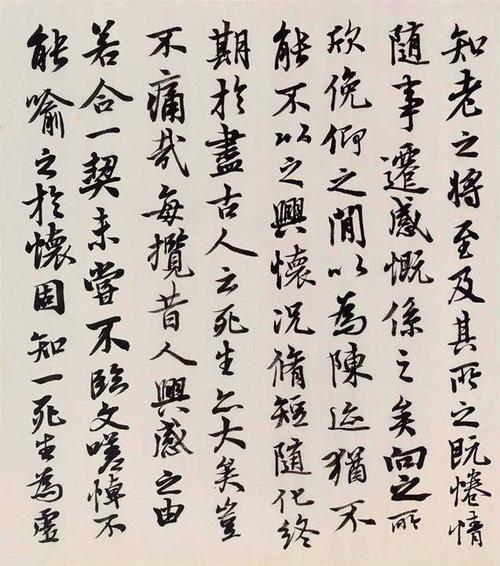 知老之將至及其所之既惓情
随事遷感慨係之矣向之所
欣俛仰之閒以為陳迹猶不
能不以之興懷況脩短随化終
期於盡古人云死生亦大矣豈
不痛哉每攬昔人興感之由
若合一契未嘗不臨文嗟悼不
能喻之於懷固知一死生為虛